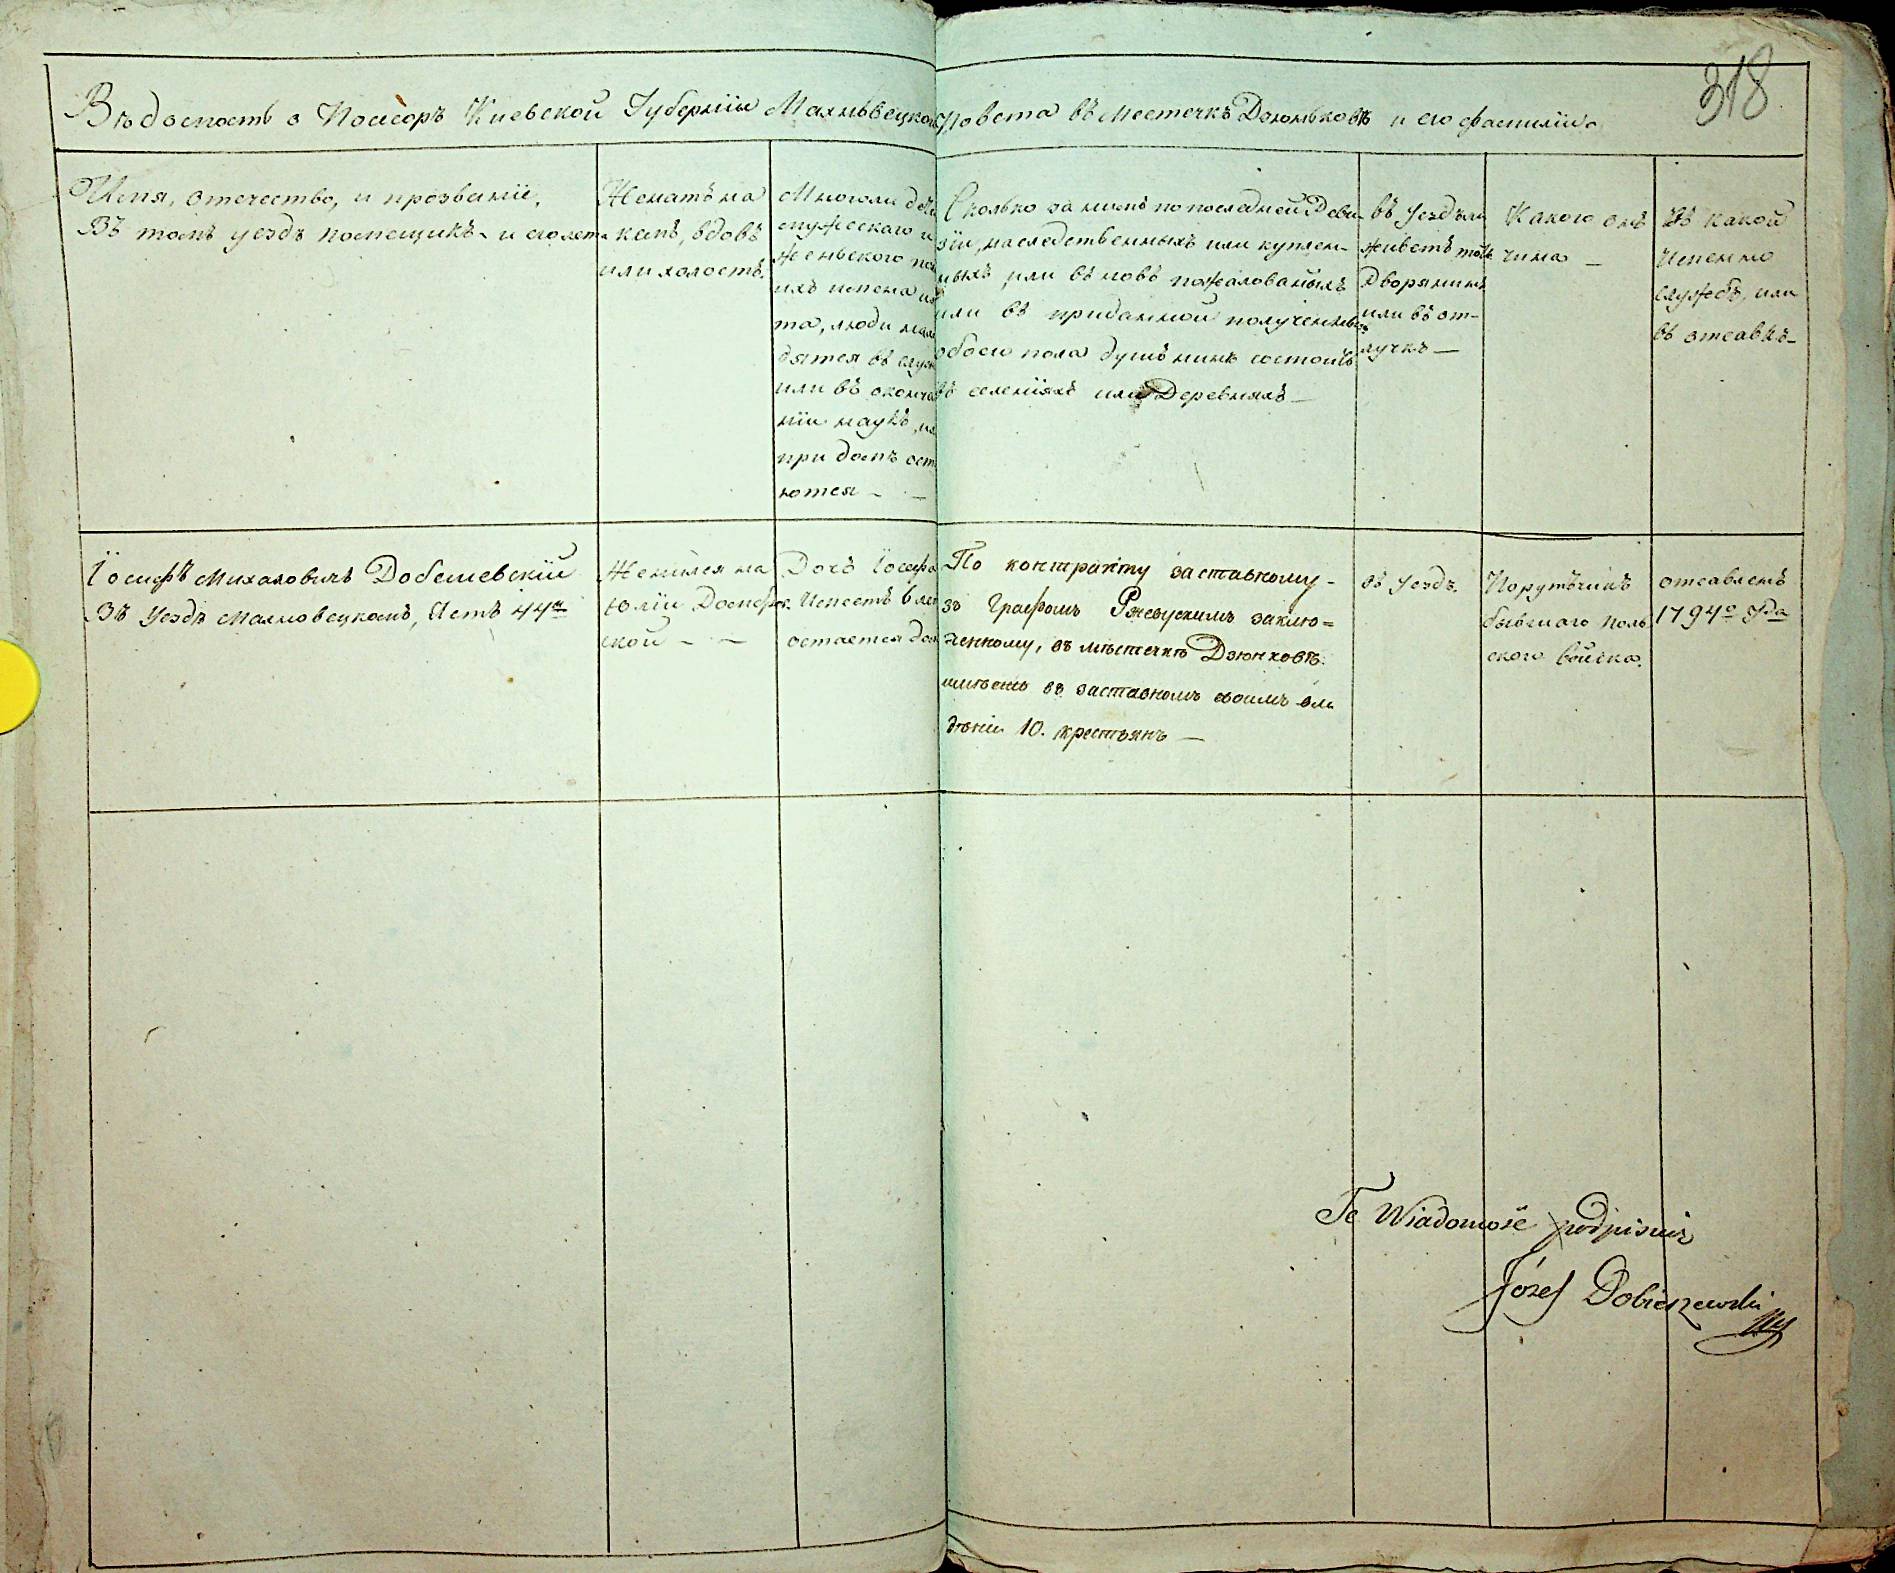 318
Вѣдомость о Посесорѣ Киевской Губернïи Махновецкого Повета въ местечкѣ Дзюньковѣ и его фамилïи
Имя, отечество, и прозванïе,
Въ томъ уездѣ помещикъ и сколет
Женатъ на
комъ, вдовъ
или холостъ.
Многоли дете
мужескаго и
женьского пол
ихъ имена и ле
та, люди нахо
дятся въ служ
или въ оконча
нïи наукъ, ил
при домѣ оста
ются —
Сколько за нимъ по последней Реви
зïи, наследственныхъ или куплен-
ныхъ, или въновь пожалованыхъ
или въ приданной полученныхъ
обоего пола душъ и ннѣ состоитъ
въ селенïяхъ или Деревняхъ —
въ уездѣли
живетъ тотъ
Дворянинъ
или въ от-
лучкѣ —
Какого онъ
чина —
Въ какой
Именно
службѣ, или
въ отсавкѣ —
Ïосифъ Михаловичъ Добешевскïй
Въ Уездѣ Махновецкомъ, Летъ 44ꙶ
Женился на
Юлïи Домбров
ской — —
Дочь Ïосефа
Имеетъ 6 лет
остается дома
По контракту заставному -
зъ Графомъ Ржевускимъ заклю=
ченному, въ мѣстечкѣ Дзюнковѣ
имѣетъ въ заставномъ своимъ вла
дѣнïи 10. крестьянъ —
въ уездѣ.
Порутъчикъ
бывшаго поль
ского войска.
отсавленъ
1794го Года
Te Wiadomość podpisuię
Józef Dobieszewski